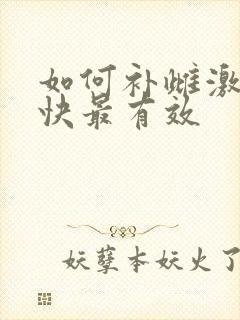 如何补雌激
快最有效
妖孽本妖火了